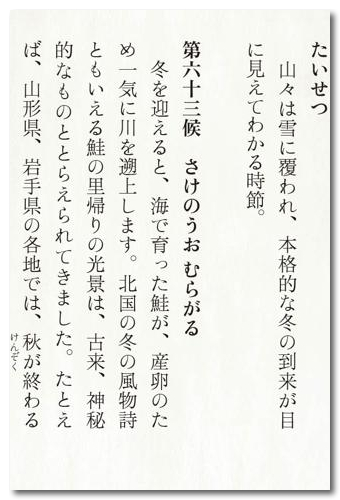 たいせつ
山々は雪に覆われ、本格的な冬の到来が目
に見えてわかる時節。
第六十三候 さけのうお むらがる
冬を迎えると、海で育った鮭が、産卵のた
め一気に川を遡上します。北国の冬の風物詩
ともいえる鮭の里帰りの光景は、古来、神秘
的なものととらえられてきました。たとえ
ば、山形県、岩手県の各地では、秋が終わる
けんぞく